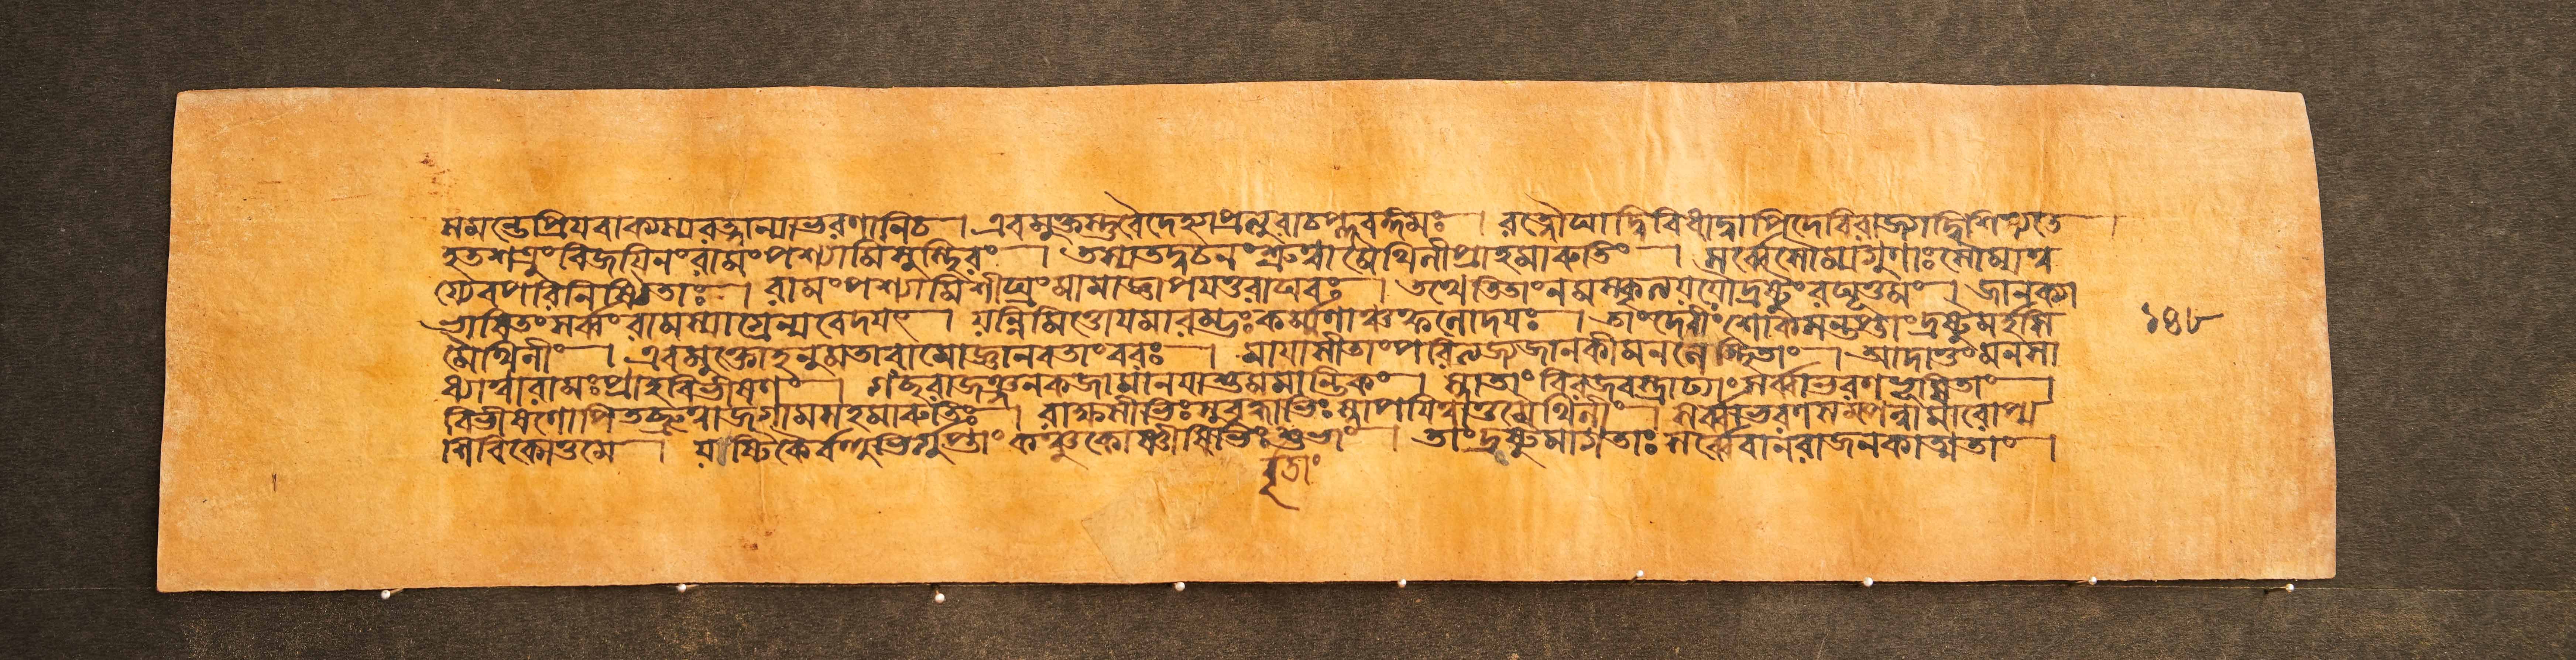 সমন্তেপ্রিয়বাক্যস্যরত্নান্যাভরণানিচ। এবমুক্তস্তুবৈদেহ্যাপ্রত্যুবাচপ্লবঙ্গমঃ। রত্নৌঘাদ্বিবিধাদ্বাপিদেবিরাজ্যাদ্বিশিষ্যতে
হতশত্রুং বিজয়িনং রামং পশ্যামিসুস্থিরং। তস্যতদ্বচনং শ্রুত্বামৈথিলীপ্রাহমারুতিং। সর্ব্বেসৌম্যাগুণাঃসৌম্যত্ব
য্যেবপরিনিষ্ঠিতাঃ। রামং পশ্যামিশীঘ্রং মামাজ্ঞাপয়তুরাঘবঃ। তথেতিতাং নমস্কৃত্যযযৌদ্রষ্টুং রঘূত্তমং। জানক্যা
ভাষিতং সর্ব্বং রামস্যাগ্রেন্যবেদয়ৎ। যন্নিমিত্তোয়মারম্ভঃকর্ম্মণাঞ্চফলোদয়ঃ। তাং দেবীং শোকসন্তপ্তাং দ্রষ্টুমর্হসি
মৈথিলীং। এবমুক্তোহনুমতারামোজ্ঞানবতাংবরঃ। মায়াসীতাং পরিত্যজ্যজানকীমনলেস্থিতাং। আদাতুং মনসা
ধ্যাত্বারামঃপ্রাহবিভীষণং। গচ্ছরাজঞ্জনকজামানয়াশুমমান্তিকং। স্নাতাং বিরজবস্ত্রাঢ্যাং সর্ব্বাভরণভূষিতাং।
বিভীষণোপিতচ্ছ্রুত্বাজগামসহমারুতিঃ। রাক্ষসীভিঃসুবৃদ্ধাভিঃস্নাপয়িত্বাতুমৈথিলীং। সর্ব্বাভরণসম্পন্নামারোপ্য
শিবিকোত্তমে। যাষ্টিকৈর্বহুভির্গুপ্তাং কঞ্চুকোষ্ণীষিভিঃশুভাং। তাং দ্রষ্টুমাগতাঃসর্ব্বেবানরাজনকাত্মজাং।
বৃতাং
১৪৮